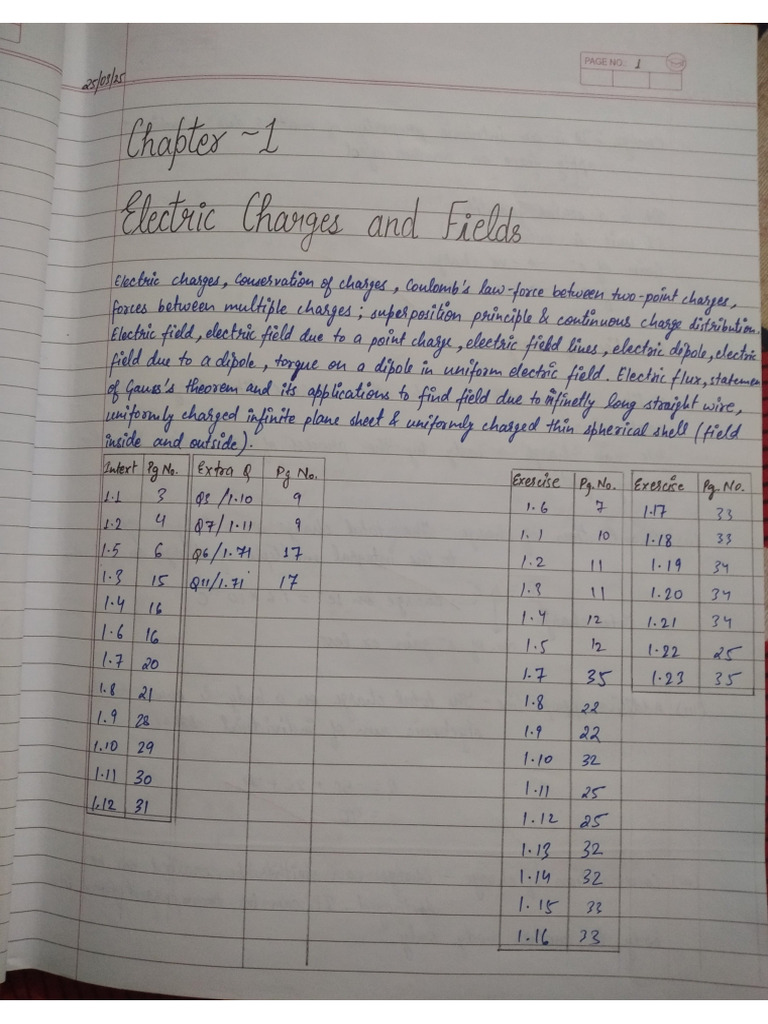 25/03/25
PAGE NO.: 1
Chapter ~1
Electric Charges and Fields
Electric charges, Conservation of charges, Coulomb's law-force between two-point charges,
forces between multiple charges; superposition principle & continuous charge distribution.
Electric field, electric field due to a point charge, electric field lines, electric dipole, electric
field due to a dipole, torque on a dipole in uniform electric field. Electric flux, statemen
of Gauss's theorem and its applications to find field due to infinetly long straight wire,
uniformly charged infinite plane sheet & uniformly charged thin spherical shell (field
inside and outside).
Intext Pg No. Extra Q Pg No. Exercise Pg. No. Exercise Pg. No.
1.1 3 Q3/1.10 9 1.6 7 1.17 33
1.2 4 Q7/1.11 9 1.1 10 1.18 33
1.5 6 Q6/1.71 17 1.2 11 1.19 34
1.3 15 Q11/1.71 17 1.3 11 1.20 34
1.4 16 1.4 12 1.21 34
1.6 16 1.5 12 1.22 25
1.7 20 1.7 35 1.23 35
1.8 21 1.8 22
1.9 28 1.9 22
1.10 29 1.10 32
1.11 30 1.11 25
1.12 31 1.12 25
1.13 32
1.14 32
1.15 33
1.16 33